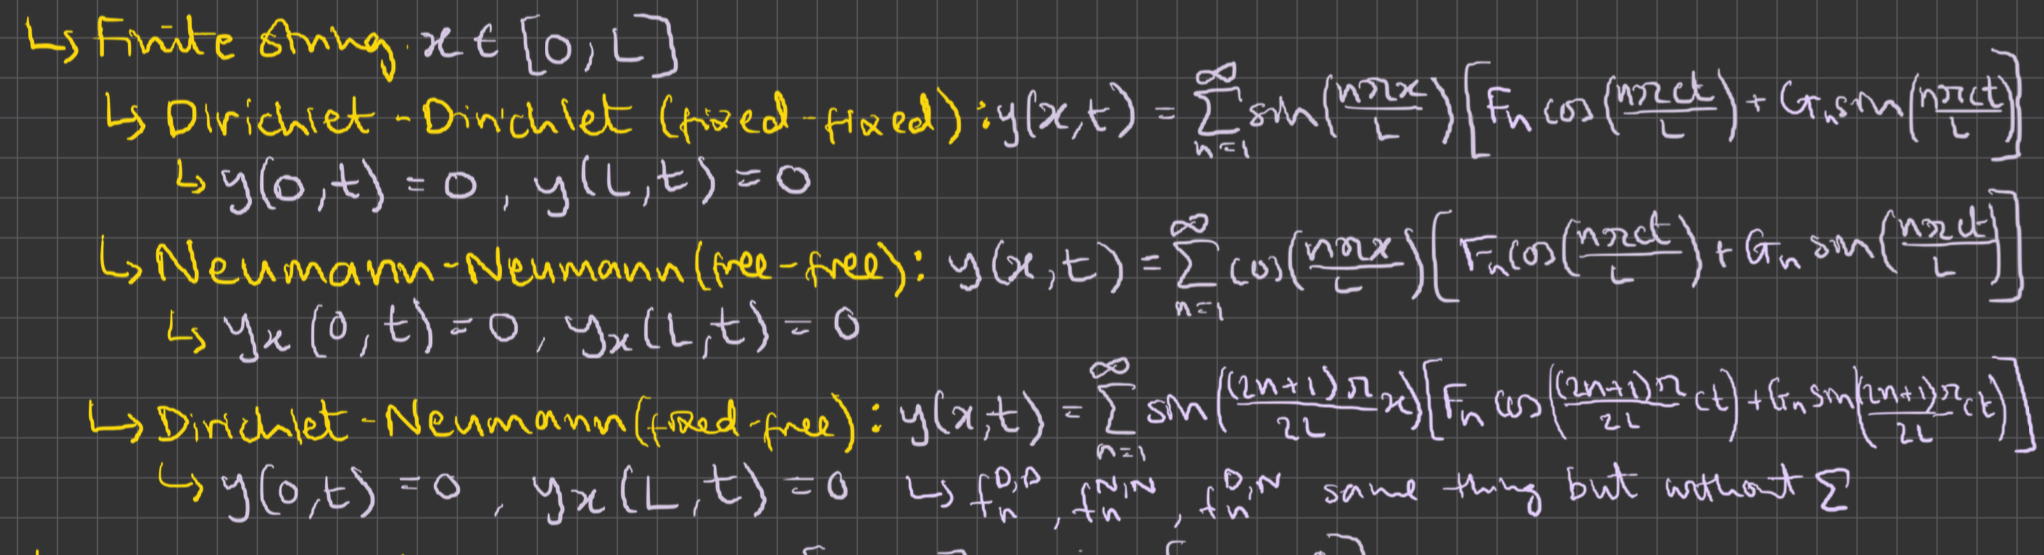 ↳ Finite string x ∈ [0, L]
↳ Dirichlet - Dirichlet (fixed-fixed): y(x,t) = ∑_{n=1}^{∞} sin(nπx/L) [F_n cos(nπct/L) + G_n sin(nπct/L)]
↳ y(0,t) = 0, y(L,t) = 0
↳ Neumann-Neumann (free-free): y(x,t) = ∑_{n=1}^{∞} cos(nπx/L) [F_n cos(nπct/L) + G_n sin(nπct/L)]
↳ y_x(0,t) = 0, y_x(L,t) = 0
↳ Dirichlet - Neumann (fixed-free): y(x,t) = ∑_{n=1}^{∞} sin((2n+1)π/2L x) [F_n cos((2n+1)π/2L ct) + G_n sin((2n+1)π/2L ct)]
↳ y(0,t) = 0, y_x(L,t) = 0 ↳ f_n^{D,D}, f_n^{N,N}, f_n^{D,N} same thing but without ∑